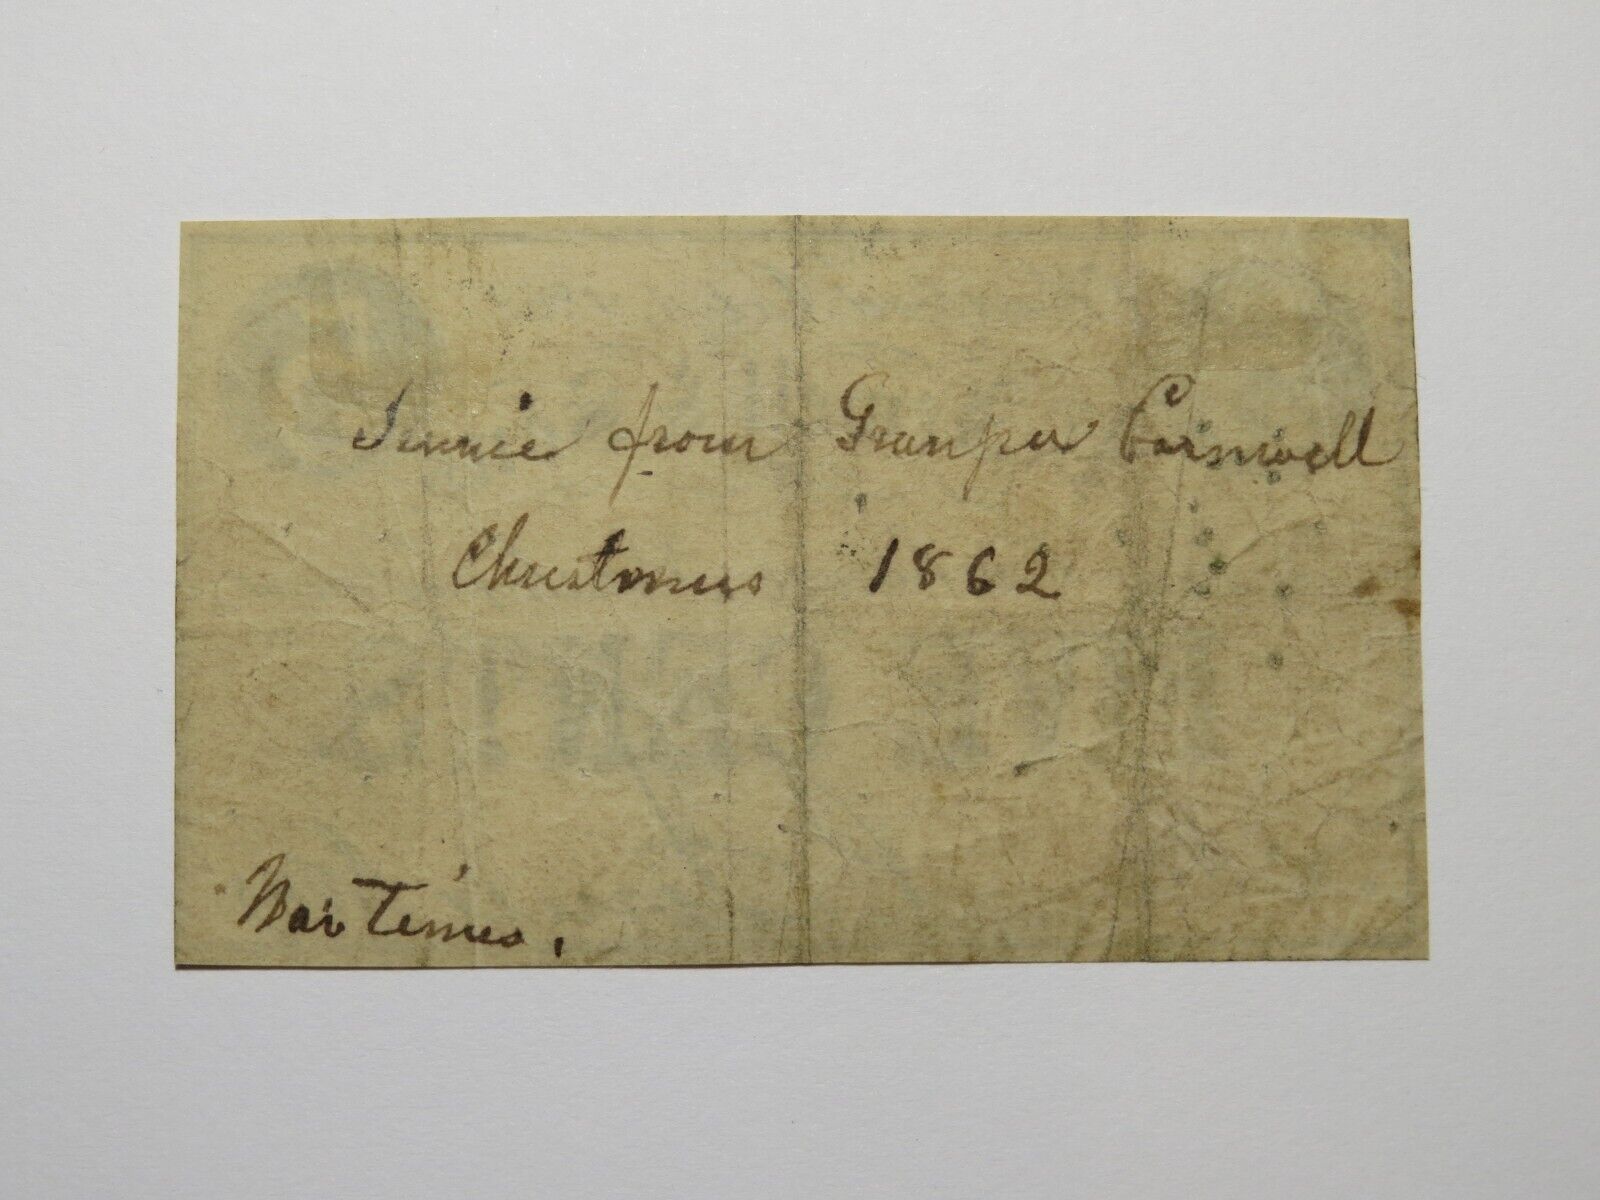 Jennie from Granpa Cornwell
Christmas 1862
War Times.